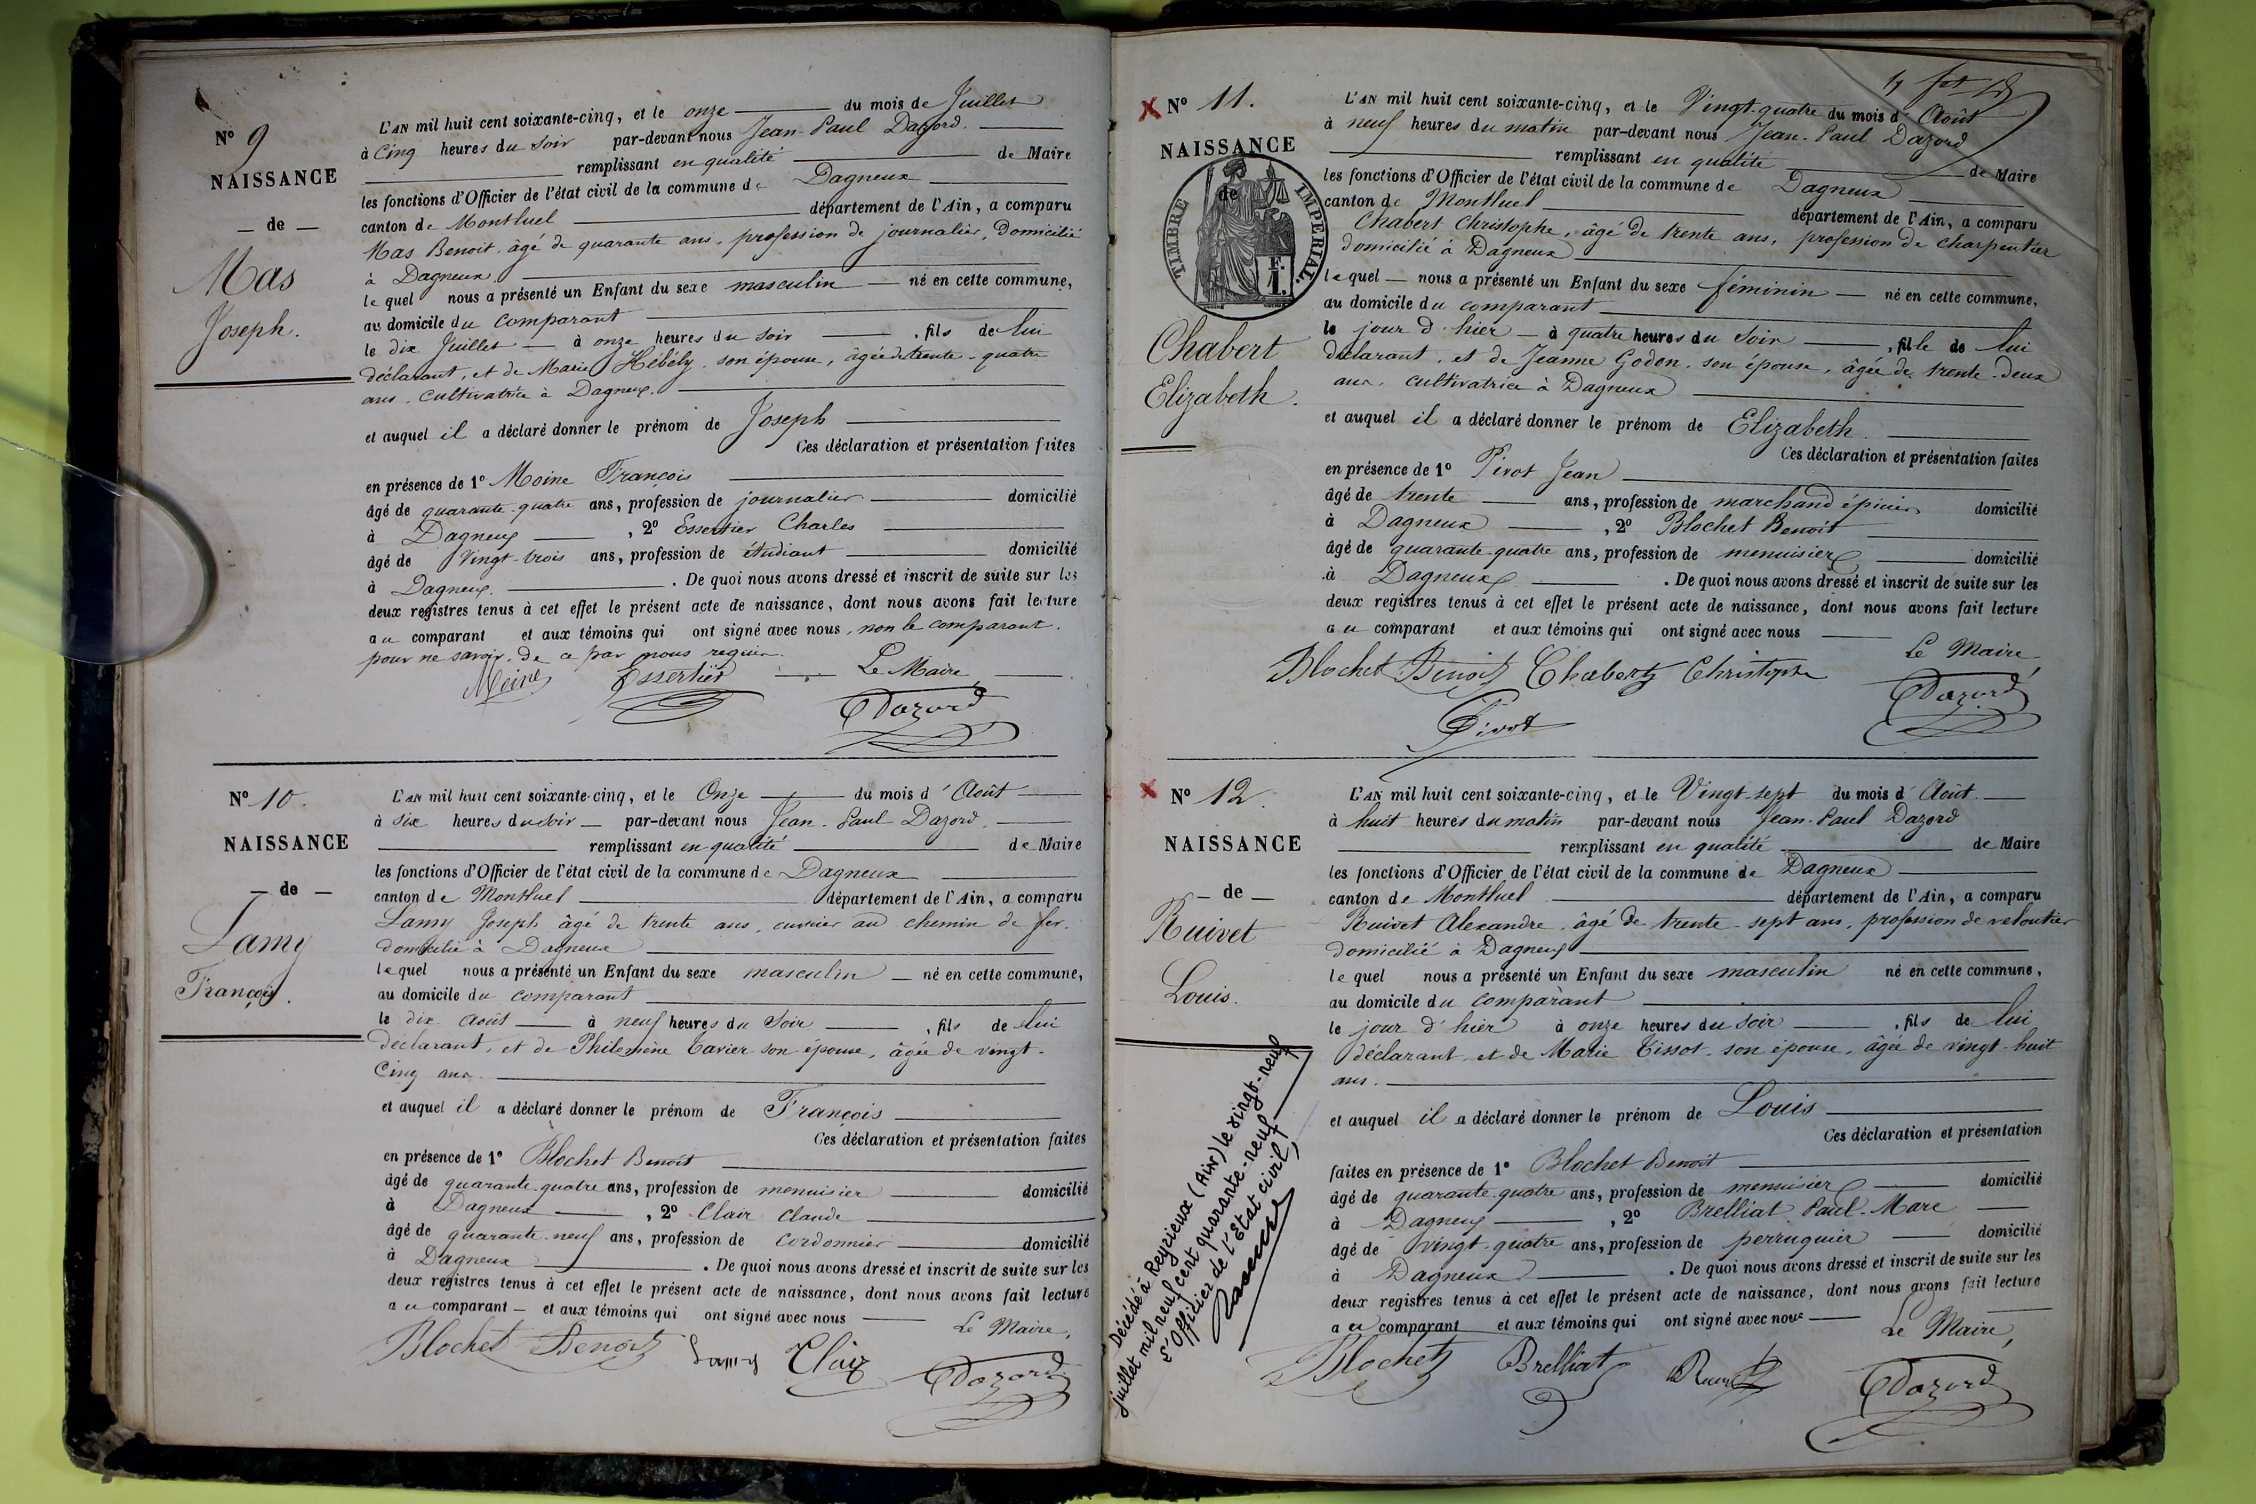 N° 9
NAISSANCE
— de —
Mas
Joseph.
L'AN mil huit cent soixante-cinq, et le onze du mois de Juillet
à Cinq heures du Soir par-devant nous Jean-Paul Dazord.
remplissant en qualité de Maire
les fonctions d'Officier de l'état civil de la commune de Dagneux
canton de Montluel département de l'Ain, a comparu
Mas Benoit, âgé de quarante ans, profession de journalier, Domicilié
à Dagneux
lequel nous a présenté un Enfant du sexe masculin né en cette commune,
au domicile du comparant
le dix Juillet à onze heures du Soir, fils de lui
déclarant, et de Marie Hébély, son épouse, âgée de trente-quatre
ans, Cultivatrice à Dagneux.
et auquel il a déclaré donner le prénom de Joseph
Ces déclaration et présentation faites
en présence de 1° Moine François
âgé de quarante-quatre ans, profession de journalier domicilié
à Dagneux, 2° Essertier Charles
âgé de Vingt-trois ans, profession de étudiant domicilié
à Dagneux. De quoi nous avons dressé et inscrit de suite sur les
deux registres tenus à cet effet le présent acte de naissance, dont nous avons fait lecture
au comparant et aux témoins qui ont signé avec nous, non le comparant.
pour ne savoir, de ce par nous requis.
Moine Essertier Le Maire,
Dazord
N° 10.
NAISSANCE
— de —
Lamy
François.
L'AN mil huit cent soixante-cinq, et le Onze du mois d'Août
à six heures du soir par-devant nous Jean-Paul Dazord.
remplissant en qualité de Maire
les fonctions d'Officier de l'état civil de la commune de Dagneux
canton de Montluel département de l'Ain, a comparu
Lamy Joseph, âgé de trente ans, ouvrier au chemin de fer.
domicilié à Dagneux
lequel nous a présenté un Enfant du sexe masculin né en cette commune,
au domicile du comparant
le dix Août à neuf heures du Soir, fils de lui
déclarant, et de Philomène Tavier son épouse, âgée de vingt-
Cinq ans.
et auquel il a déclaré donner le prénom de François
Ces déclaration et présentation faites
en présence de 1° Blochet Benoit
âgé de quarante-quatre ans, profession de menuisier domicilié
à Dagneux, 2° Clair Claude
âgé de quarante-neuf ans, profession de cordonnier domicilié
à Dagneux. De quoi nous avons dressé et inscrit de suite sur les
deux registres tenus à cet effet le présent acte de naissance, dont nous avons fait lecture
au comparant et aux témoins qui ont signé avec nous
Le Maire,
Blochet Benoit Lamy Clair Dazord
X N° 11.
NAISSANCE
de
TIMBRE IMPERIAL.
1 F.
Chabert
Elizabeth.
L'AN mil huit cent soixante-cinq, et le Vingt-quatre du mois d'Août
à neuf heures du matin par-devant nous Jean-Paul Dazord
remplissant en qualité de Maire
les fonctions d'Officier de l'état civil de la commune de Dagneux
canton de Montluel département de l'Ain, a comparu
Chabert Christophe, âgé de trente ans, profession de charpentier
domicilié à Dagneux
lequel nous a présenté un Enfant du sexe féminin né en cette commune,
au domicile du comparant
le jour d'hier à quatre heures du Soir, fille de lui
déclarant, et de Jeanne Godon, son épouse, âgée de trente-deux
ans, cultivatrice à Dagneux
et auquel il a déclaré donner le prénom de Elizabeth.
Ces déclaration et présentation faites
en présence de 1° Pivot Jean
âgé de trente ans, profession de marchand épicier domicilié
à Dagneux, 2° Blochet Benoit
âgé de quarante-quatre ans, profession de menuisier domicilié
à Dagneux. De quoi nous avons dressé et inscrit de suite sur les
deux registres tenus à cet effet le présent acte de naissance, dont nous avons fait lecture
au comparant et aux témoins qui ont signé avec nous
Le Maire,
Blochet Benoit Chabert Christophe Dazord
Pivot
X N° 12.
NAISSANCE
— de —
Ruivet
Louis.
Décédé à Reyrieux (Ain) le vingt-neuf
juillet mil neuf cent quarante-neuf
L'Officier de l'Etat civil,
L'AN mil huit cent soixante-cinq, et le Vingt-sept du mois d'Août.
à huit heures du matin par-devant nous Jean-Paul Dazord
remplissant en qualité de Maire
les fonctions d'Officier de l'état civil de la commune de Dagneux
canton de Montluel département de l'Ain, a comparu
Ruivet Alexandre, âgé de trente-sept ans, profession de veloutier
domicilié à Dagneux
lequel nous a présenté un Enfant du sexe masculin né en cette commune,
au domicile du comparant
le jour d'hier à onze heures du soir, fils de lui
déclarant, et de Marie Tissot, son épouse, âgée de vingt-huit
ans.
et auquel il a déclaré donner le prénom de Louis
Ces déclaration et présentation
faites en présence de 1° Blochet Benoit
âgé de quarante-quatre ans, profession de menuisier domicilié
à Dagneux, 2° Brelliat Paul-Marc
âgé de vingt-quatre ans, profession de perruquier domicilié
à Dagneux. De quoi nous avons dressé et inscrit de suite sur les
deux registres tenus à cet effet le présent acte de naissance, dont nous avons fait lecture
au comparant et aux témoins qui ont signé avec nous
Le Maire,
Blochet Brelliat Dazord